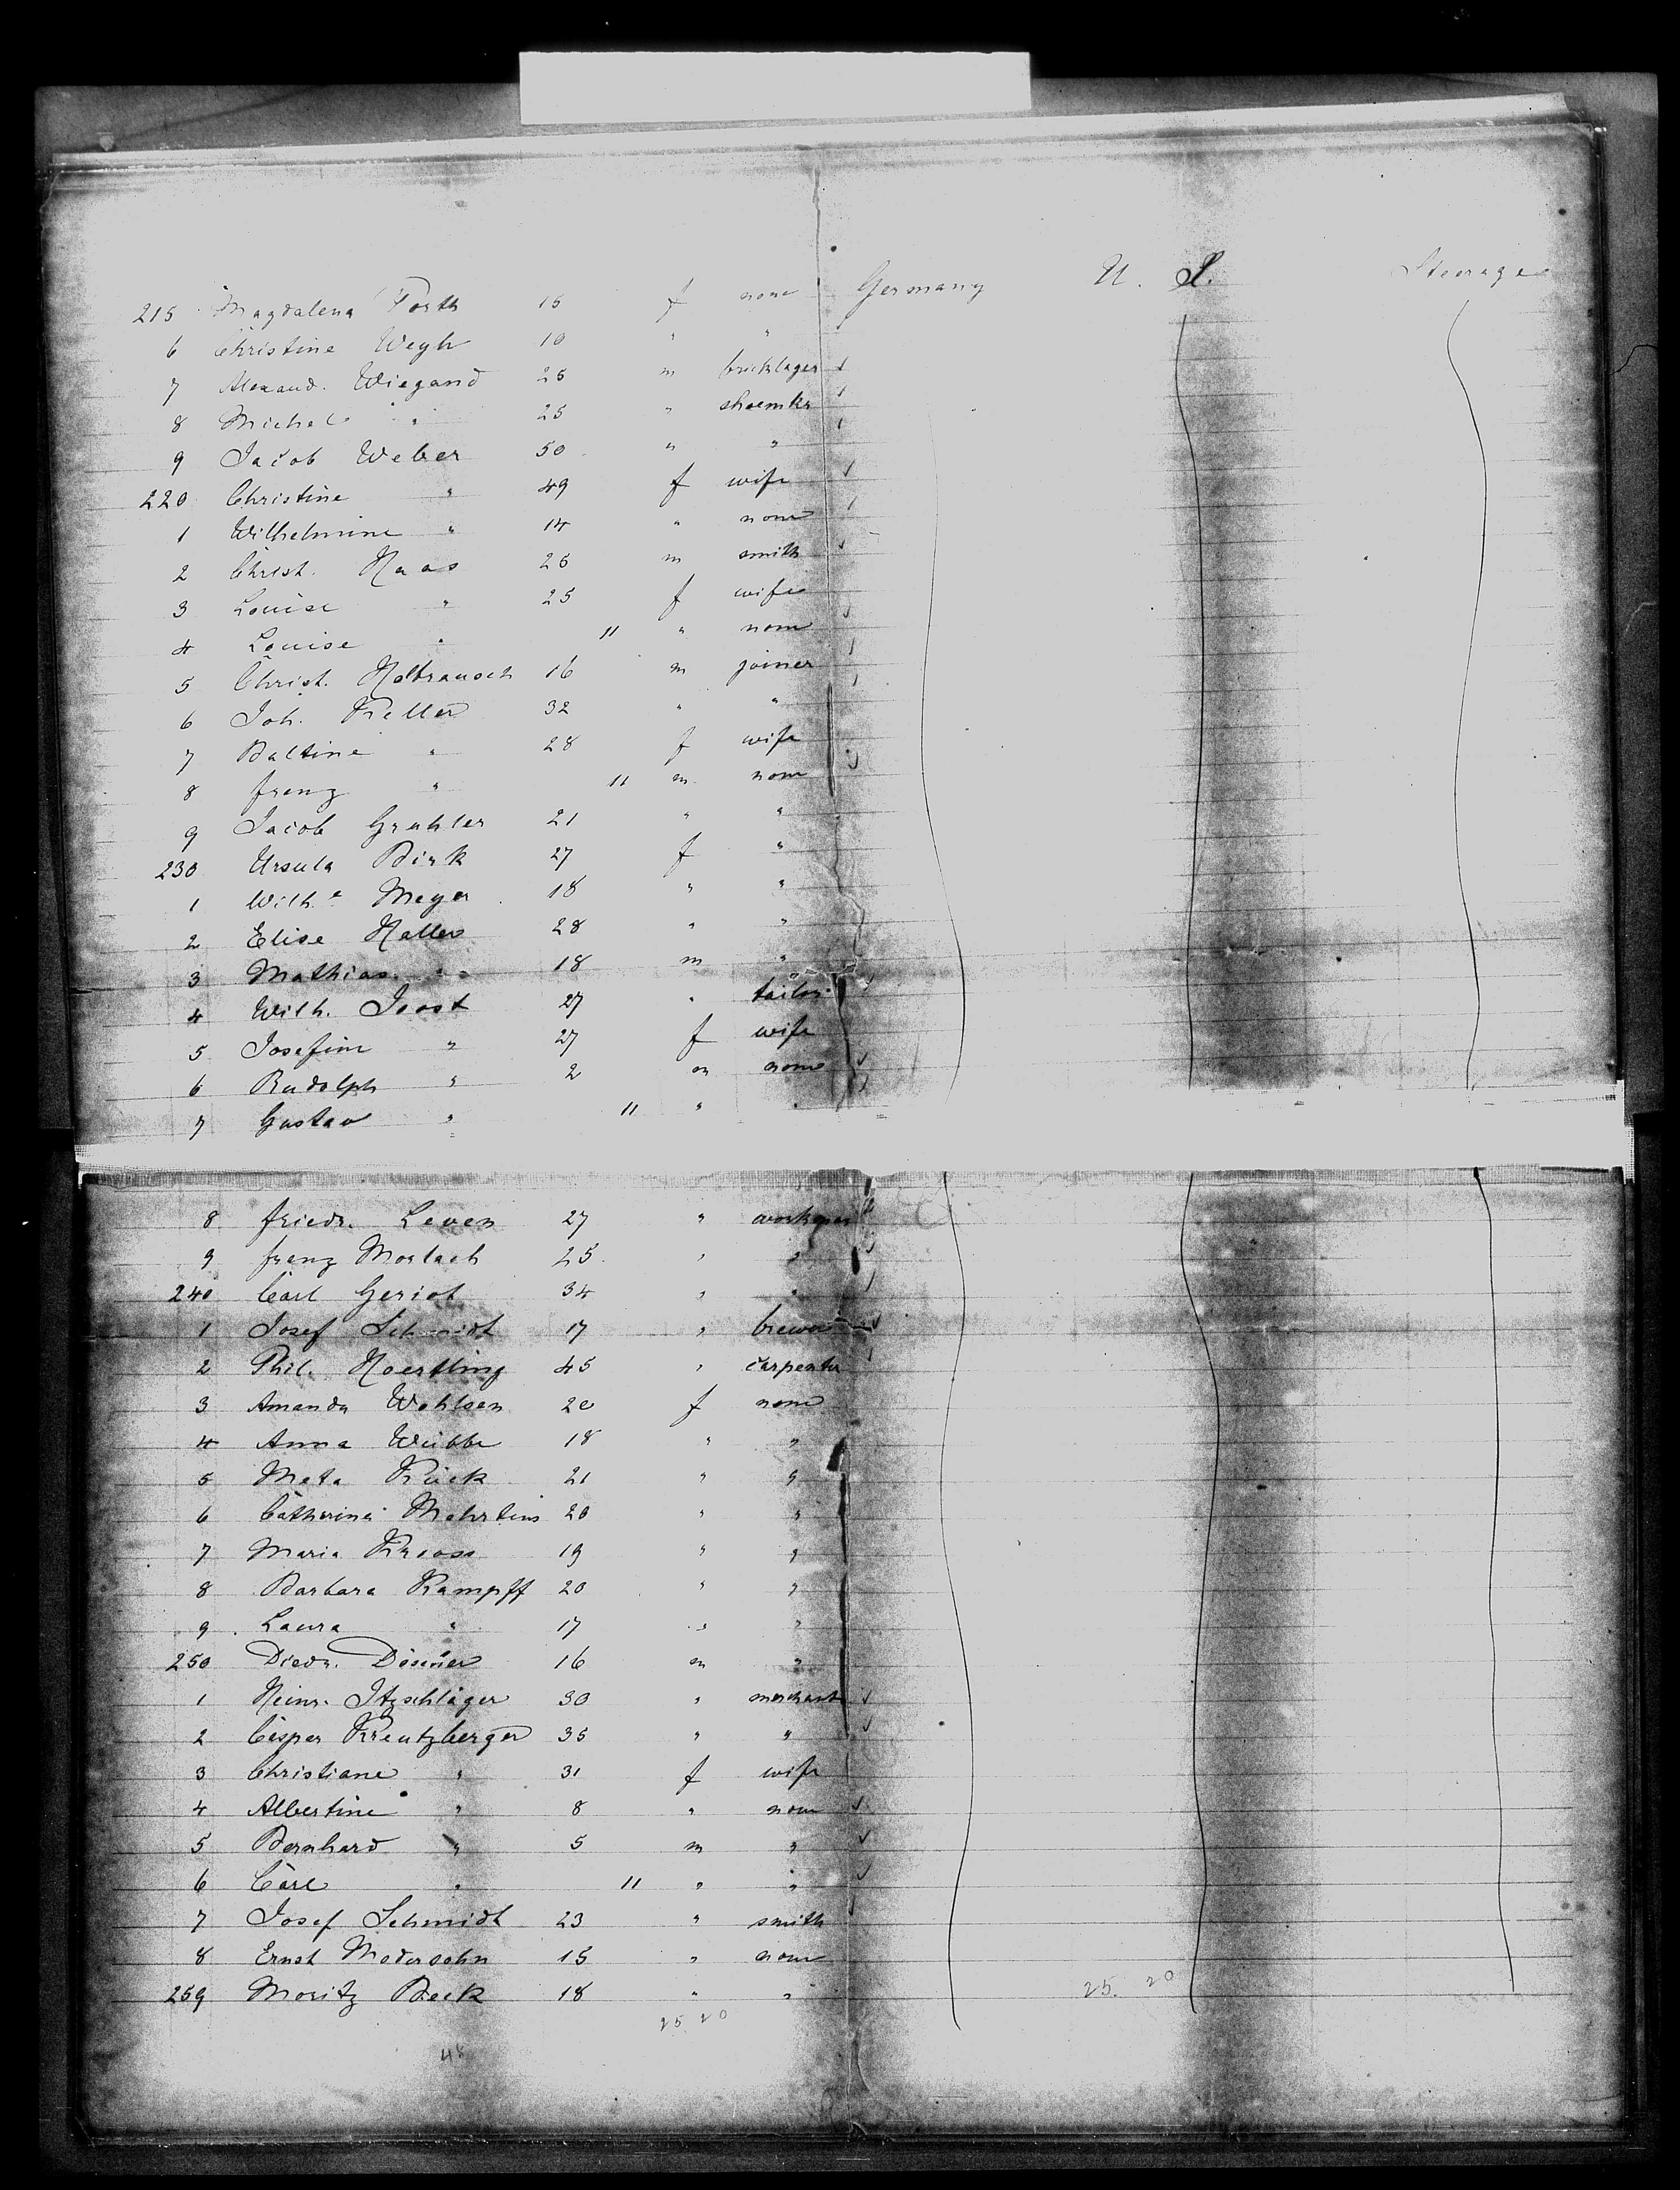 215 Magdalena Forth 15 f none Germany U. S. Steerage
6 Christine Wegh 10 " "
7 Alexand. Wiegand 25 m bricklayer
8 Michel " 25 " shoemkr
9 Jacob Weber 50 " "
220 Christine " 49 f wife
1 Wilhelmine " 14 " none
2 Christ. Haas 25 m smith
3 Louise " 25 f wife
4 Louise " 11 " none
5 Christ. 16 m joiner
6 Joh. Keller 32 " "
7 Baltine " 28 f wife
8 franz " 11 m none
9 Jacob Gruhler 21 " "
230 Ursula Birk 27 f "
1 Wilh.e Meyer 18 " "
2 Elise Haller 28 " "
3 Mathias " 18 m "
4 Wilh. Joost 27 " tailor
5 Josefine " 27 f wife
6 Rudolph " 2 m none
7 Gustav " 11 "
8 friedr. Leven 27 "
9 franz Morlach 25 " "
240 Carl Geriot 34 " "
1 Josef Schmidt 17 " brewer
2 Phil. Hoertling 45 " carpenter
3 Amanda Wohlsen 20 f none
4 Anna Wübbe 18 " "
5 Meta Kück 21 " "
6 Catharine Mehrtens 20 " "
7 Maria Kroose 19 " "
8 Barbara Kampff 20 " "
9 Laura " 17 " "
250 Diedr. 16 m "
1 Heinr. Itzschläger 30 " merchant
2 Casper Kreutzberger 35 " "
3 Christiane " 31 f wife
4 Albertine " 8 " none
5 Bernhard " 5 m "
6 Carl " 11 " "
7 Josef Schmidt 23 " smith
8 Ernst Modersohn 15 " none
259 Moritz Beck 18 " "
25. 20
25 20
48